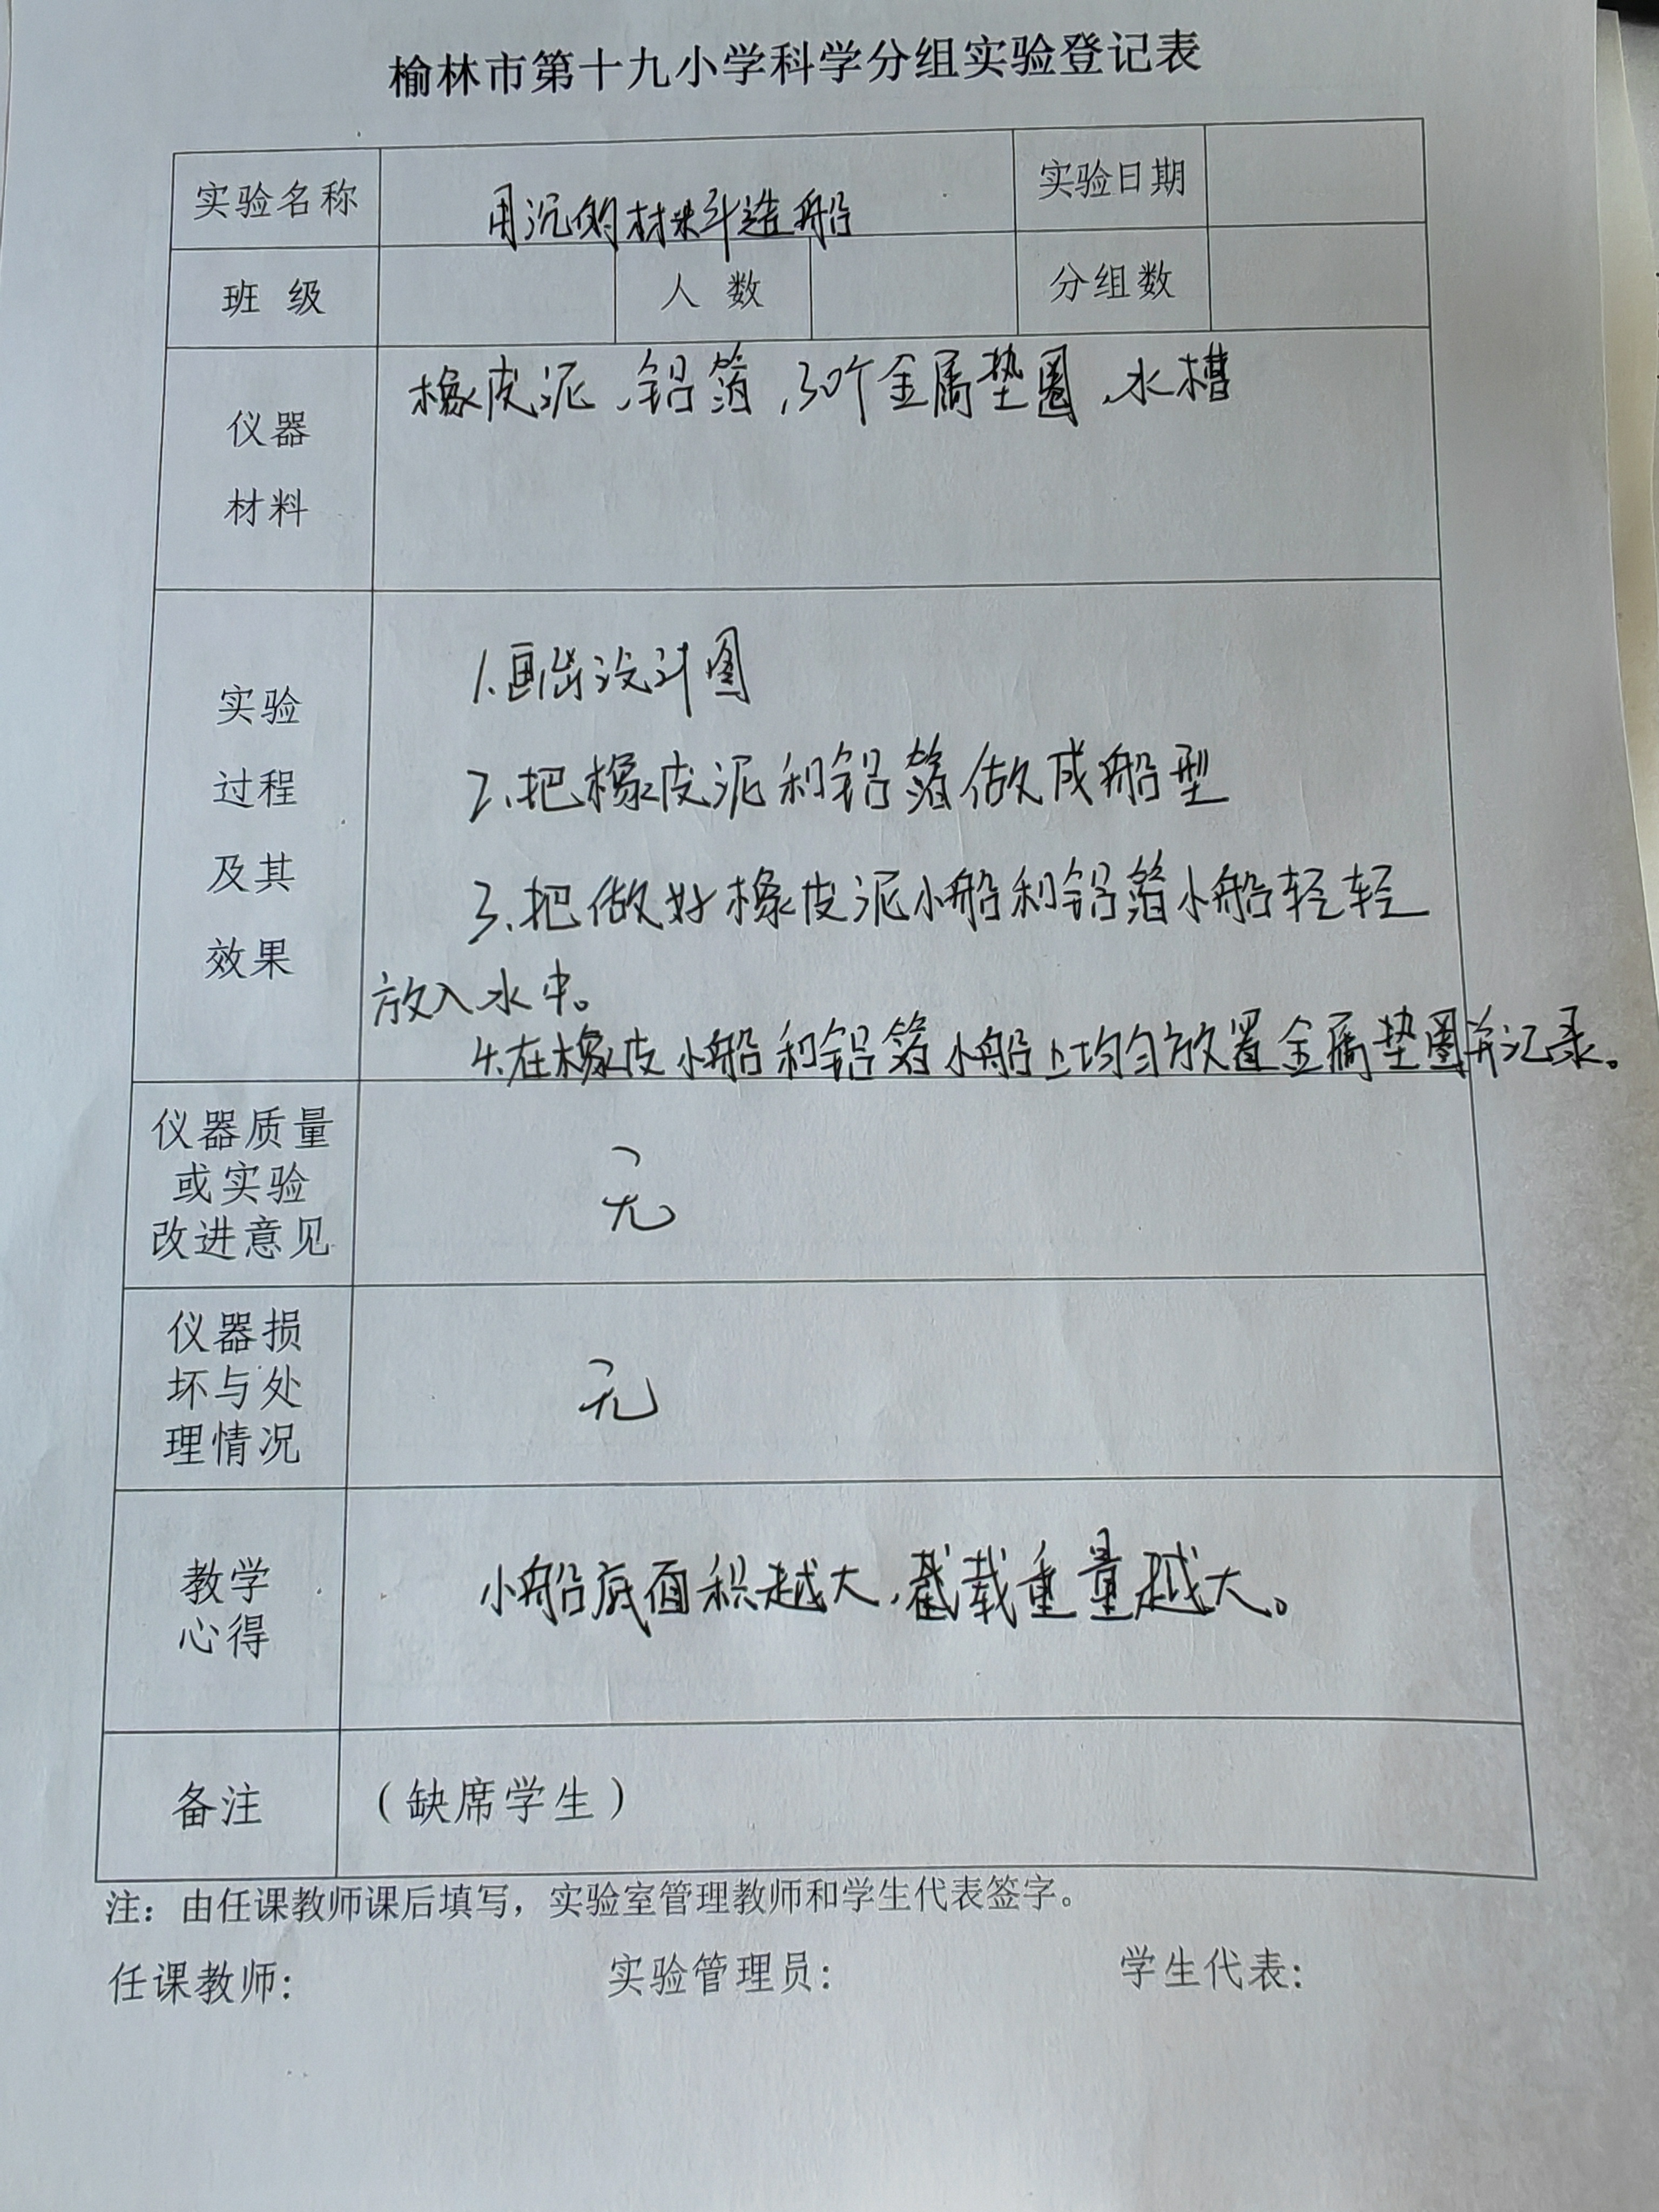 榆林市第十九小学科学分组实验登记表
实验名称 用沉的材料造船 实验日期
班 级 人 数 分组数
仪器
材料
橡皮泥、铝箔,30个金属垫圈、水槽
实验
过程
及其
效果
1.画出设计图
2.把橡皮泥和铝箔做成船型
3.把做好橡皮泥小船和铝箔小船轻轻
放入水中。
4.在橡皮小船和铝箔小船上均匀放置金属垫圈并记录。
仪器质量
或实验
改进意见
无
仪器损
坏与处
理情况
无
教学
心得
小船底面积越大,截载重量越大。
备注 (缺席学生)
注：由任课教师课后填写，实验室管理教师和学生代表签字。
任课教师： 实验管理员： 学生代表：